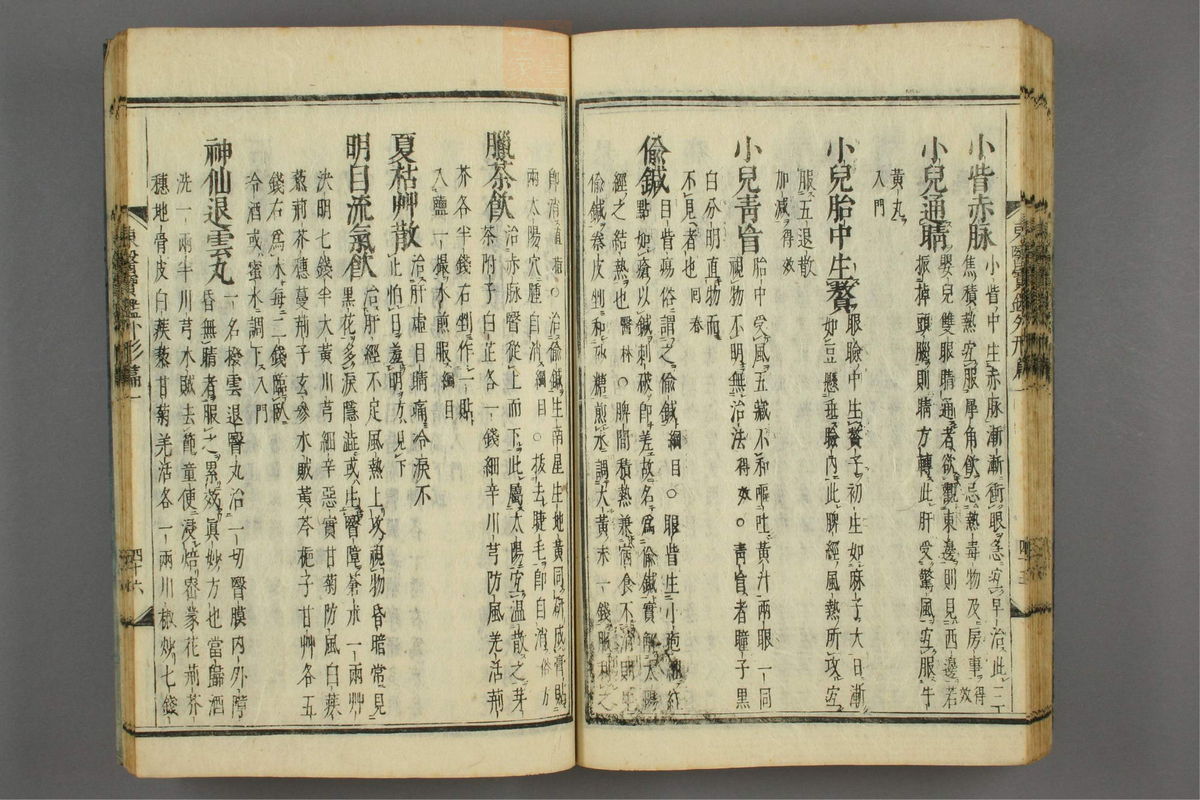 小眥赤脉 小眥中生赤脉漸漸衝眼急宜早治此三
焦積熱宜服犀角飮忌熱毒物及房事得效
小兒通睛 嬰兒雙眼睛通者欲觀東邊則見西邊若
振掉頭腦則睛方轉此肝受驚風宜服牛
黃丸
入門
小兒胎中生贅 眼瞼中生贅子初生如麻子大日漸
如豆懸垂瞼內此脾經風熱所攻宜
服五退散
加減得效
小兒靑盲 胎中受風五藏不和嘔吐黃汁兩眼一同
視物不明無治法得效○靑盲者瞳子黑
白分明直物而
不見者也回春
偸鍼 目眥瘍俗謂之偸鍼綱目○眼眥生小疱
點如瘡以鍼刺破卽差故名爲偸鍼實解太陽
經之結熱也醫林○脾間積熱兼宿食不消則生
偸鍼
東醫寶鑑外形篇一
卽消直 治偸鍼生南星生地黃同硏成膏貼
兩太陽穴腫自消綱目○拔去睫毛卽自消俗方
臘茶飮 治赤脉瞖從上而下此屬太陽宜溫散之芽
茶附子白芷各一錢細辛川芎防風羌活荊
芥各半錢右剉作一貼
入鹽一撮水煎服綱目
夏枯艸散 治肝虛目睛痛冷淚不
止怕日羞明方見下
明目流氣飮 治肝經不足風熱上攻視物昏暗常見
黑花多淚隱澁或生瞖障蒼朮一兩艸
決明七錢半大黃川芎細辛惡實甘菊防風白蒺
蔾荊芥穗蔓荊子玄參木賊黃芩梔子甘艸各五
錢右爲末每二錢臨臥
冷酒或蜜水調下入門
神仙退雲丸 一名撥雲退瞖丸治一切瞖膜內外障
昏無睛者服之累效眞妙方也當歸酒
洗一兩半川芎木賊去節童便浸焙密蒙花荊芥
穗地骨皮白蒺蔾甘菊羌活各一兩川椒炒七錢
東醫寶鑑外形篇一
四十六